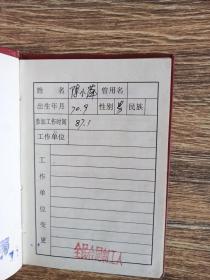 姓 名 陈小萍 曾用名
出生年月 70.9 性别 男 民族
参加工作时间 87.1
工作单位
工作单位变更
全民合同制工人